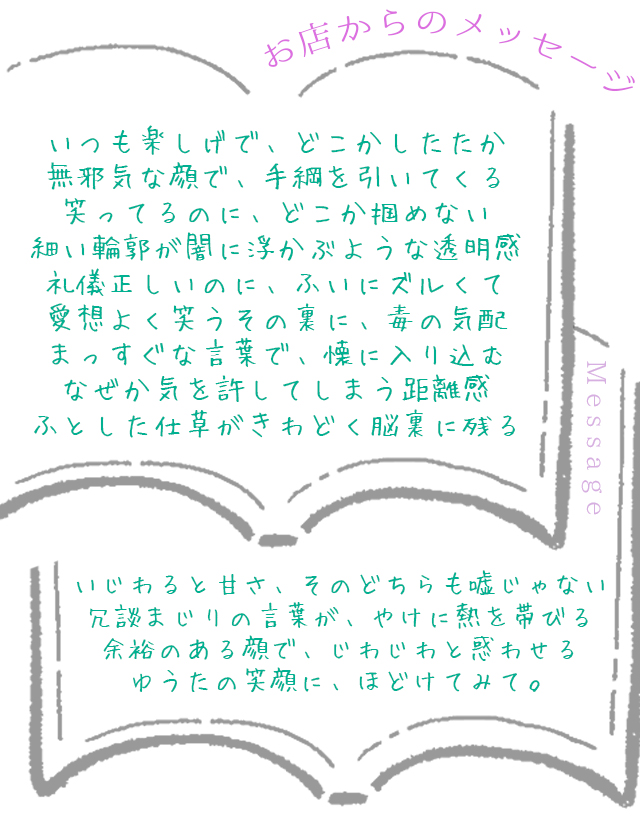 お店からのメッセージ
いつも楽しげで、どこかしたたか
無邪気な顔で、手綱を引いてくる
笑ってるのに、どこか掴めない
細い輪郭が闇に浮かぶような透明感
礼儀正しいのに、ふいにズルくて
愛想よく笑うその裏に、毒の気配
まっすぐな言葉で、懐に入り込む
なぜか気を許してしまう距離感
ふとした仕草がきわどく脳裏に残る
Message
いじわると甘さ、そのどちらも嘘じゃない
冗談まじりの言葉が、やけに熱を帯びる
余裕のある顔で、じわじわと惑わせる
ゆうたの笑顔に、ほどけてみて。